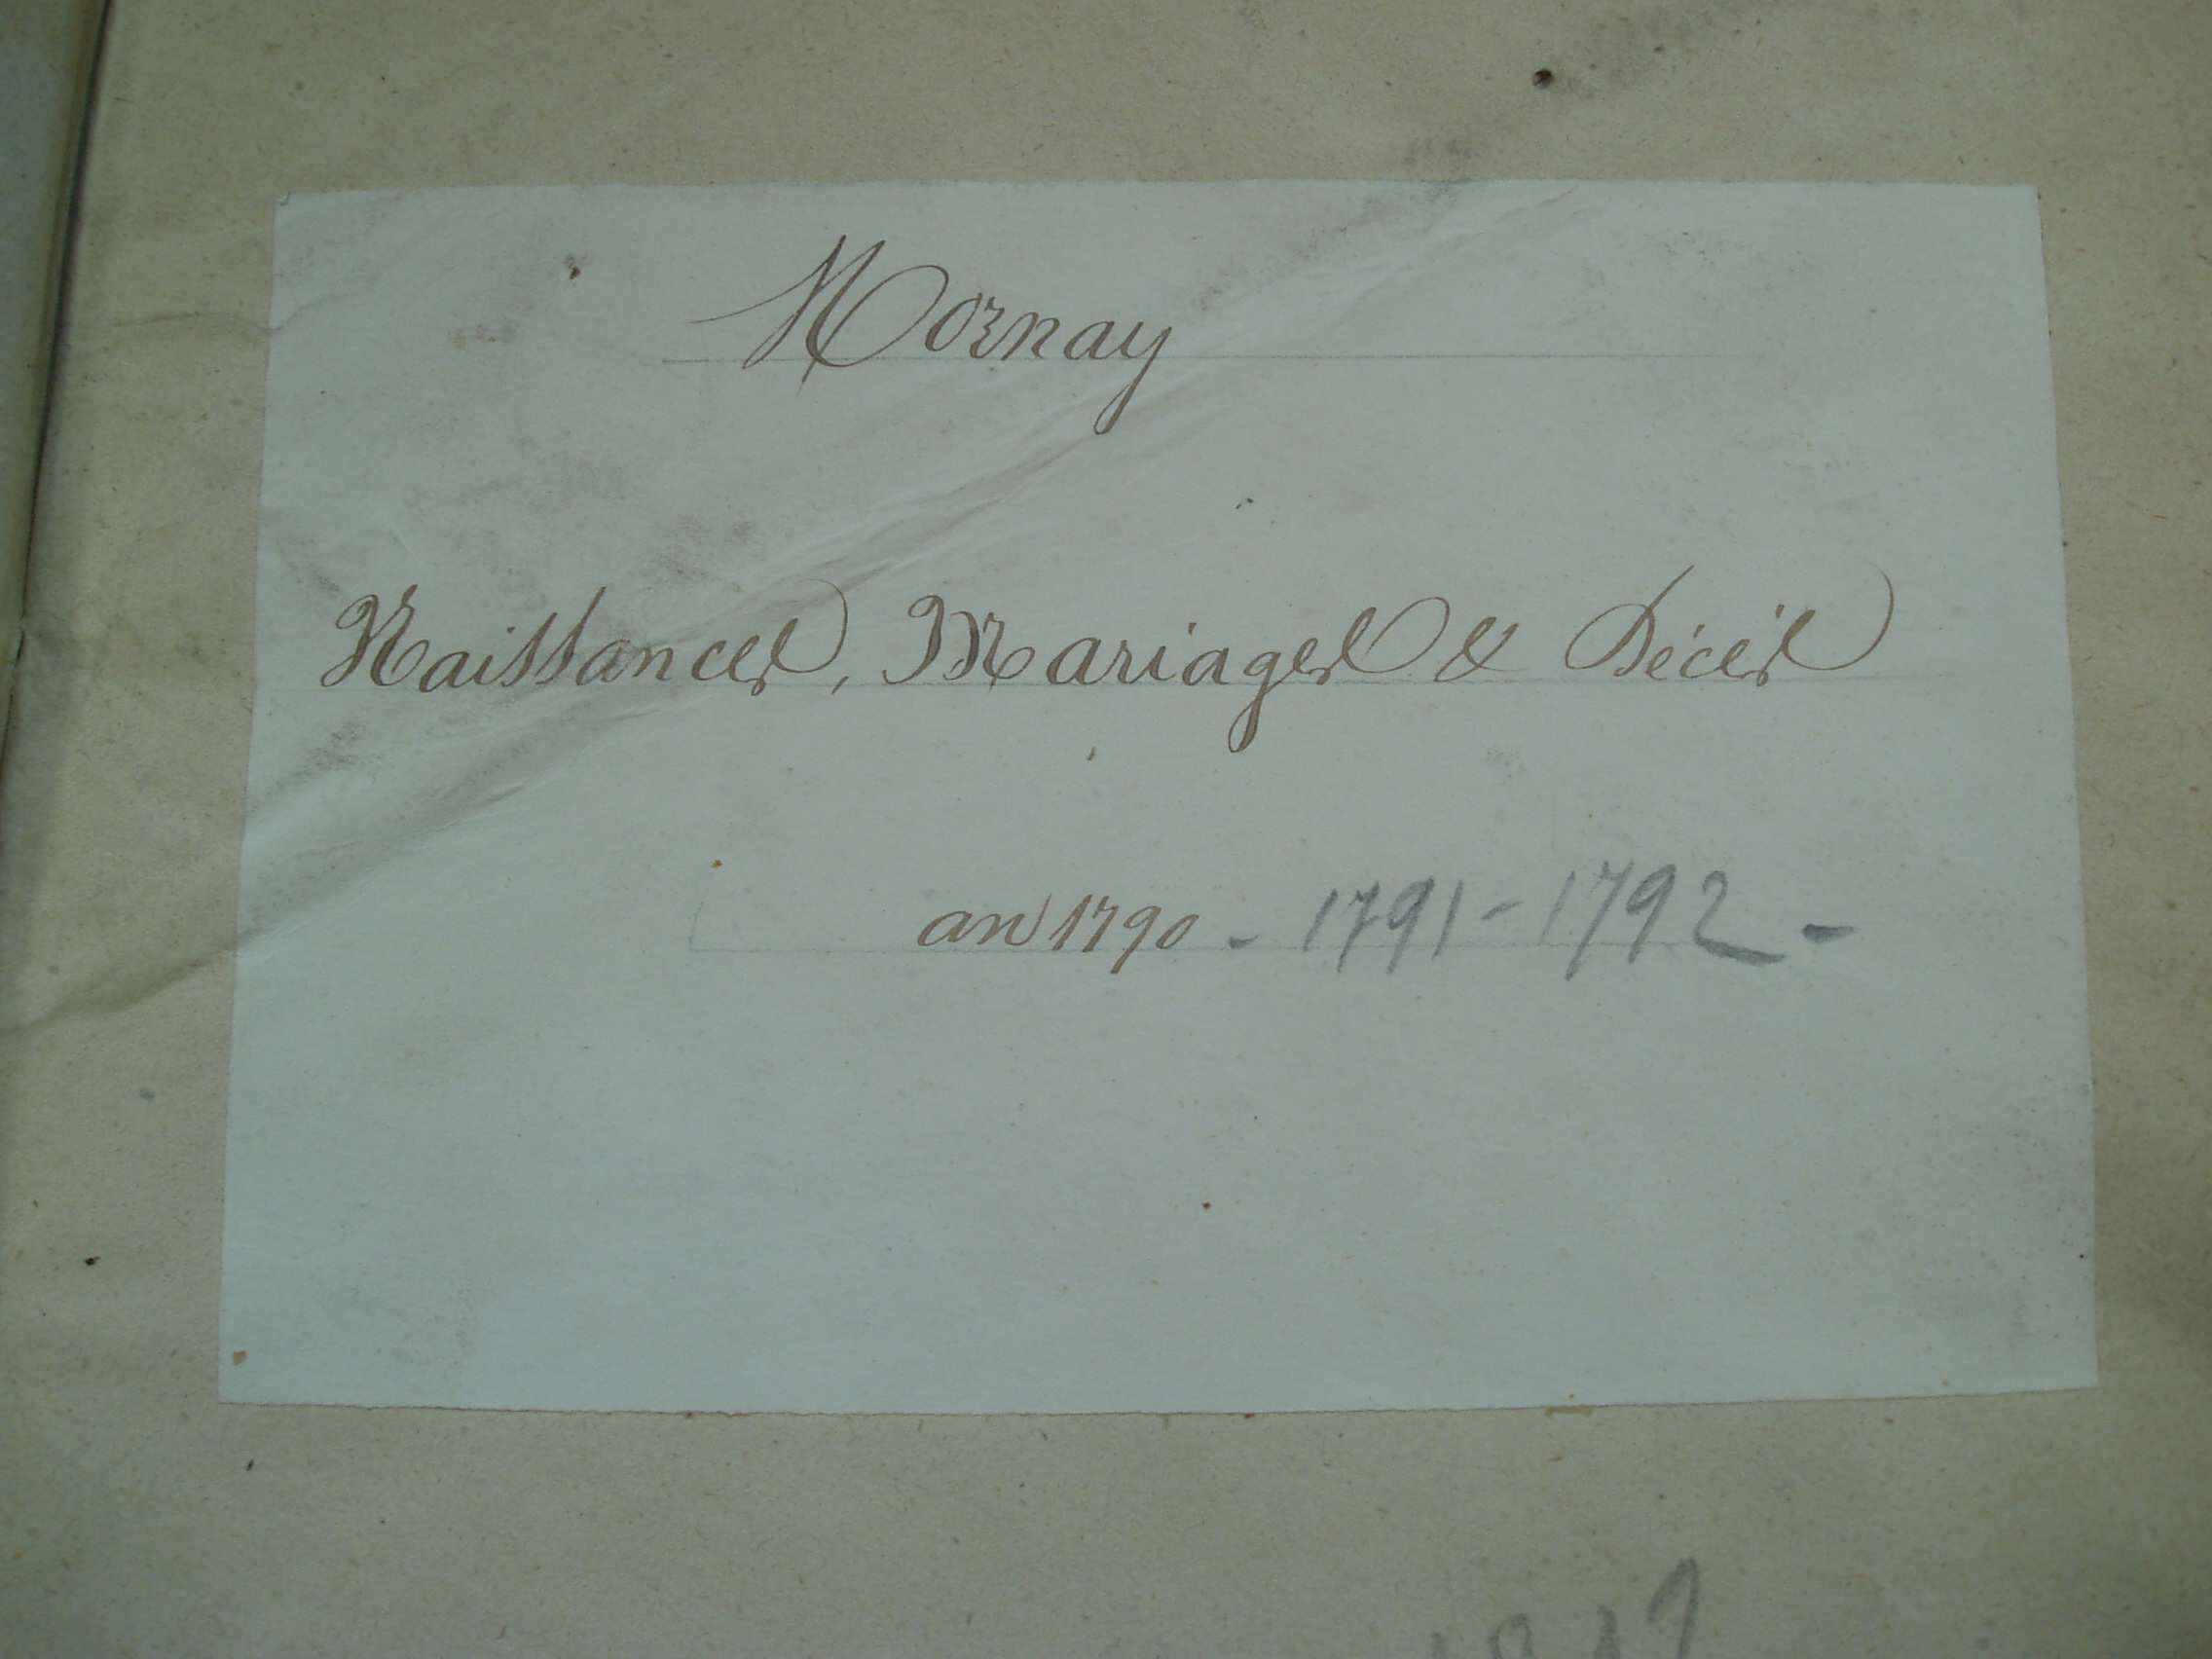 Mornay
Naissances, Mariages & Décès
an 1790 - 1791 - 1792 -